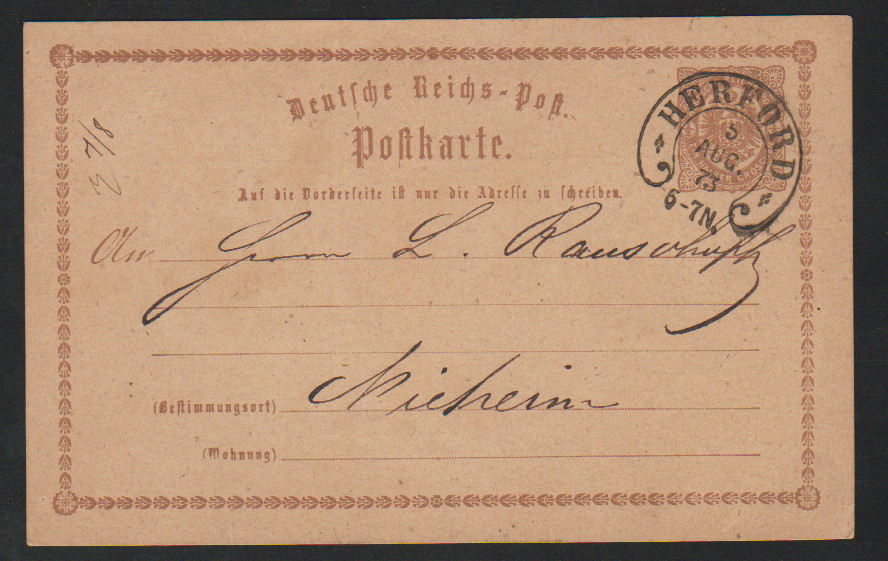 Deutsche Reichs-Post.
Postkarte.
Auf die Vorderseite ist nur die Adresse zu schreiben.
HERFORD
5
AUG.
73
6-7N
7/8
An Herrn L. Ransohoff
(Bestimmungsort) Nieheim
(Wohnung)